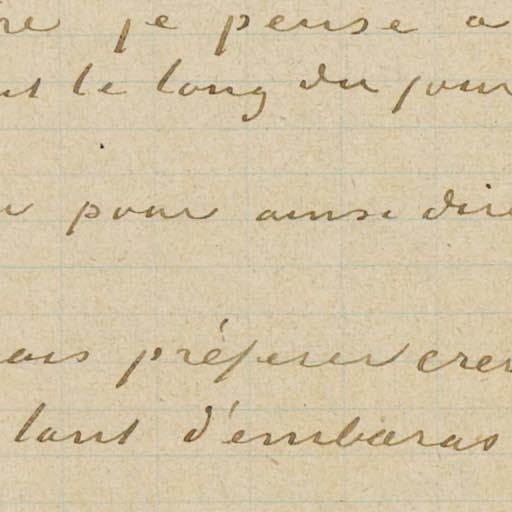 re je pense a
nt le long du jour
pour ainsi dire
ais préferer crev
tant d'embaras